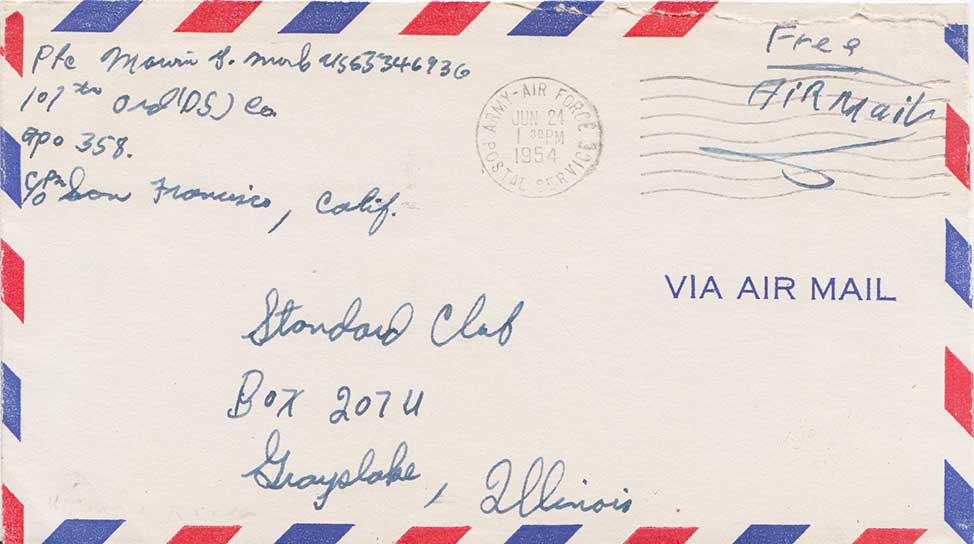 Pfc Mowin S. US55346936
107th Ord (DS) Co.
apo 358.
c/o Pm San Francisco, Calif.
ARMY-AIR FORCE
POSTAL SERVICE
JUN 24
1 30PM
1954
Free
AiR Mail
VIA AIR MAIL
Standard Club
Box 207 U
Grayslake, Illinois